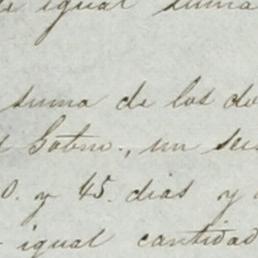 igual suma
suma de los do
Gobno., un se
0. y 45. dias y
igual cantidad